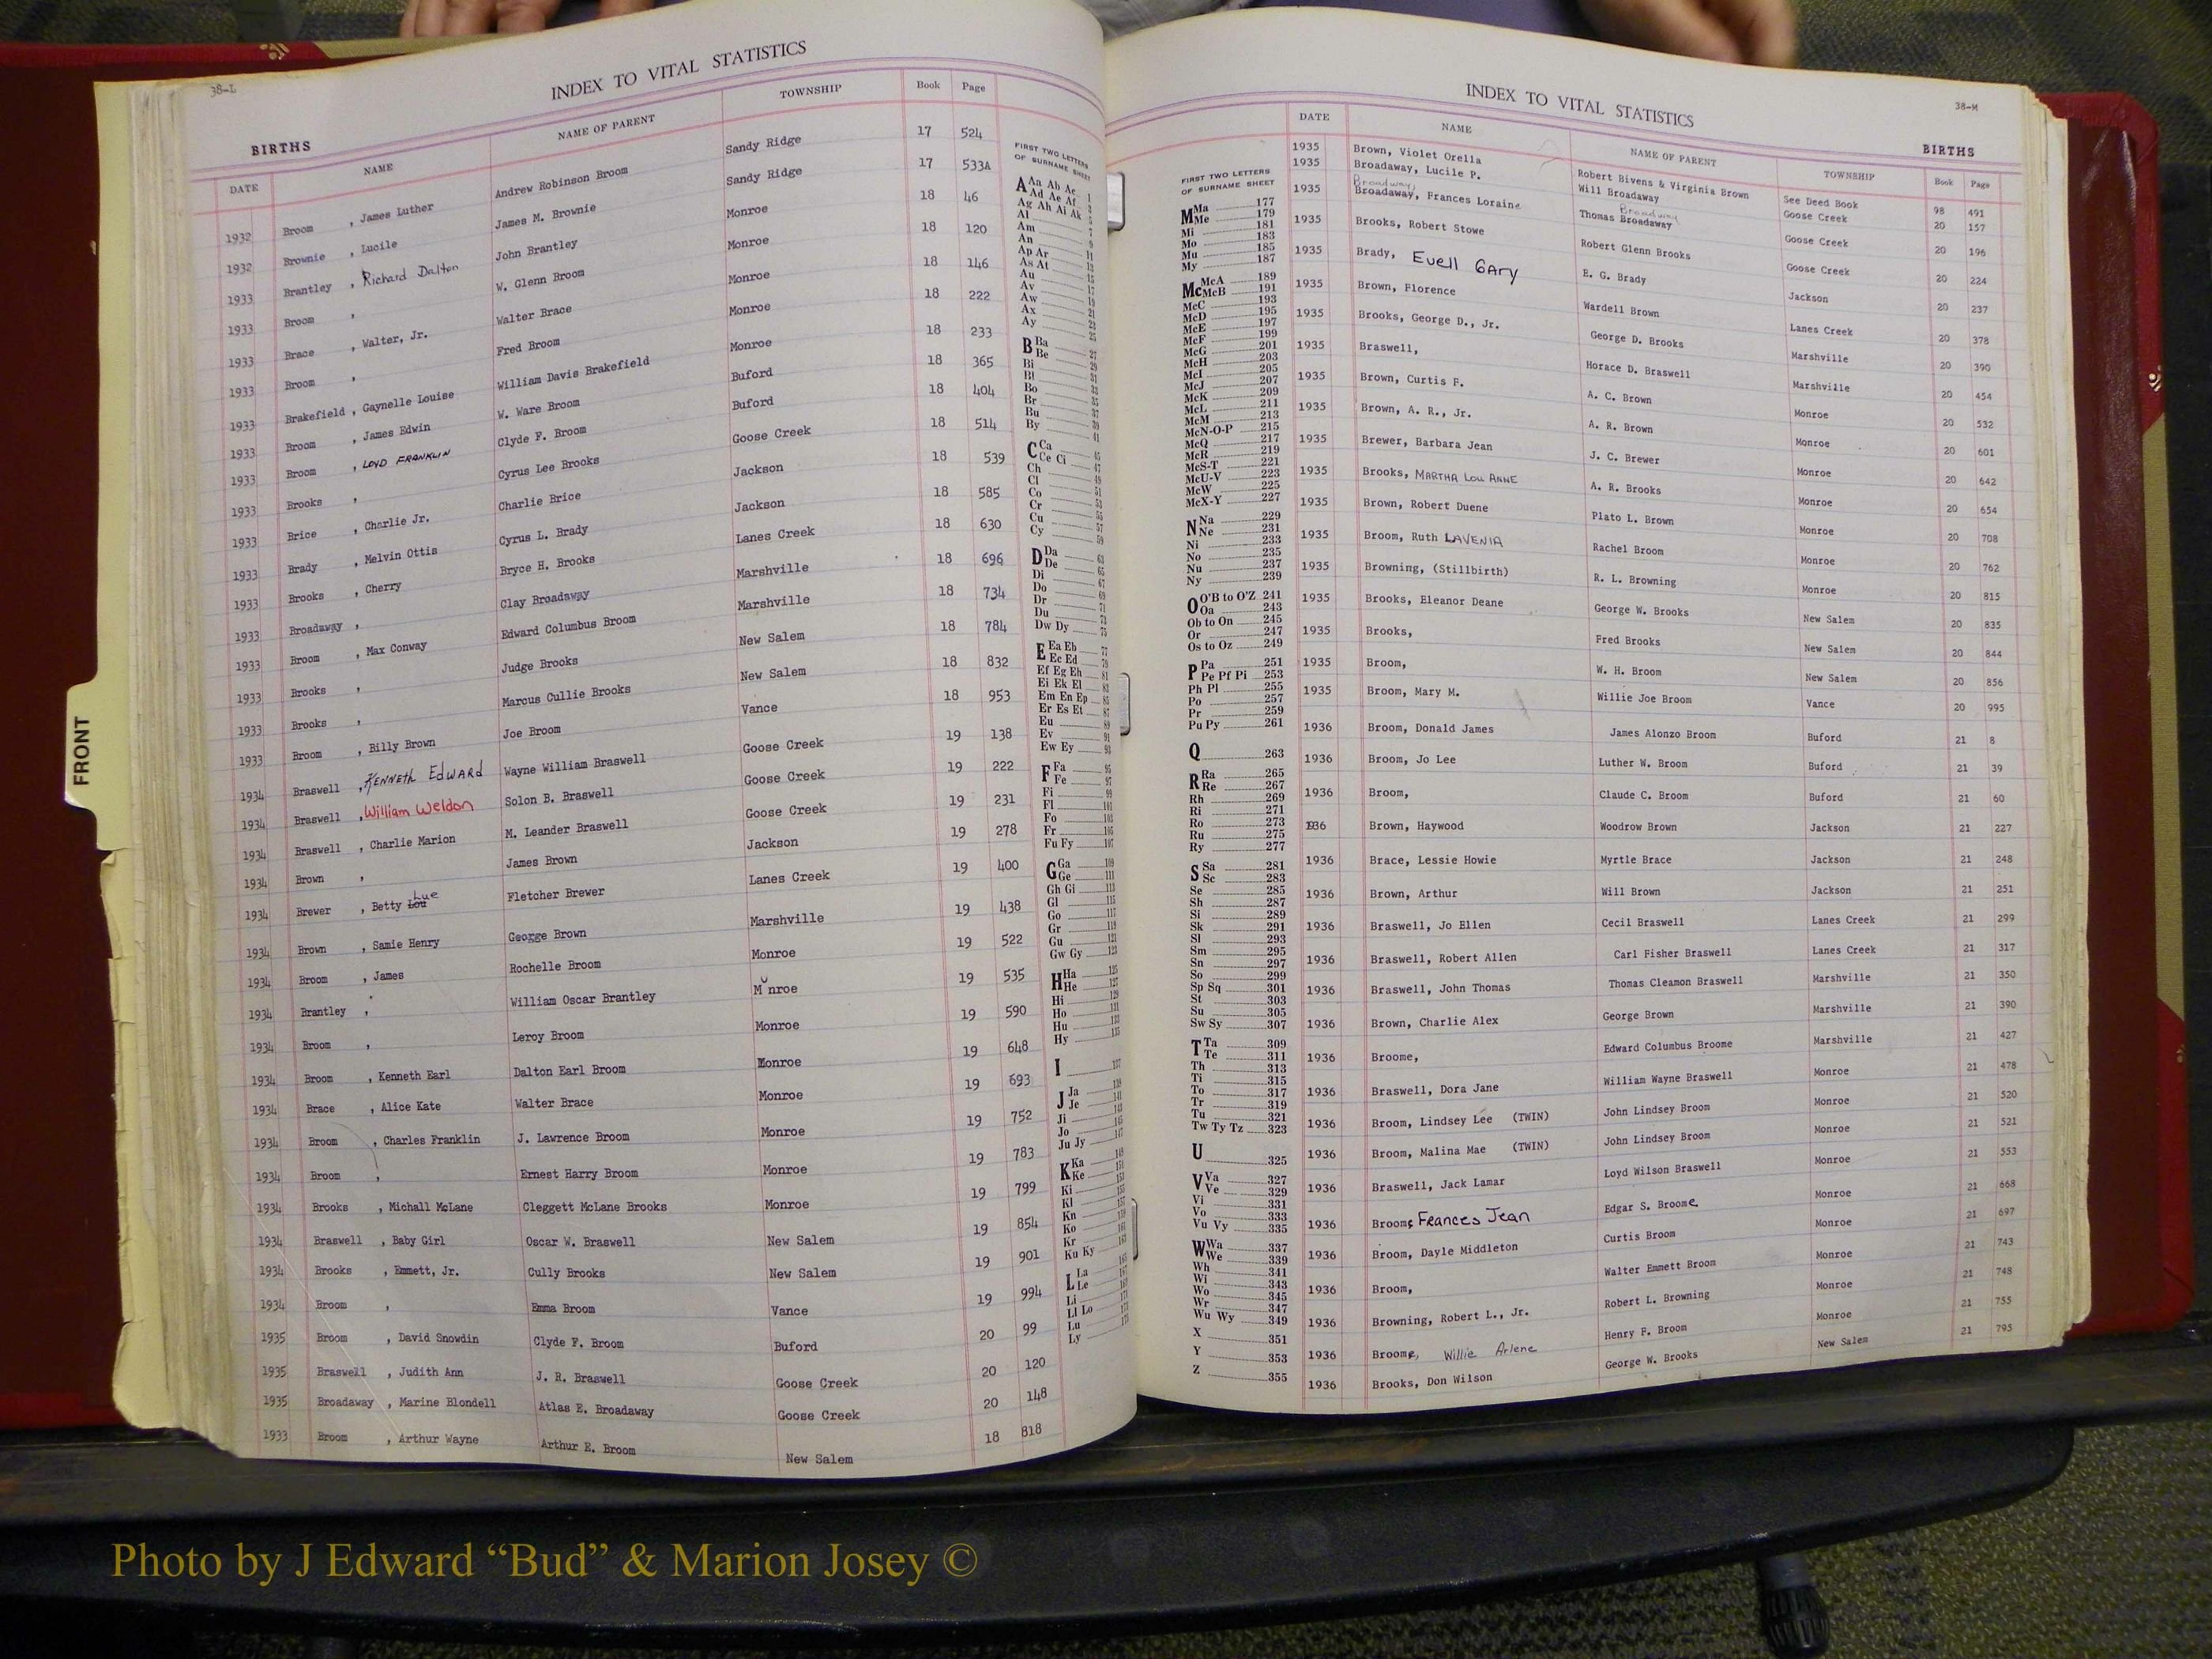 38-L
INDEX TO VITAL STATISTICS
BIRTHS
DATE NAME NAME OF PARENT TOWNSHIP Book Page
1932 Broom , James Luther Andrew Robinson Broom Sandy Ridge 17 524
1932 Brownie , Lucile James M. Brownie Sandy Ridge 17 533A
1933 Brantley , Richard Dalton John Brantley Monroe 18 46
1933 Broom , W. Glenn Broom Monroe 18 120
1933 Brace , Walter, Jr. Walter Brace Monroe 18 146
1933 Broom , Fred Broom Monroe 18 222
1933 Brakefield , Gaynelle Louise William Davis Brakefield Monroe 18 233
1933 Broom , James Edwin W. Ware Broom Buford 18 365
1933 Broom , LOYD FRANKLIN Clyde F. Broom Buford 18 404
1933 Brooks , Cyrus Lee Brooks Goose Creek 18 514
1933 Brice , Charlie Jr. Charlie Brice Jackson 18 539
1933 Brady , Melvin Ottis Cyrus L. Brady Jackson 18 585
1933 Brooks , Cherry Bryce H. Brooks Lanes Creek 18 630
1933 Broadaway , Clay Broadaway Marshville 18 696
1933 Broom , Max Conway Edward Columbus Broom Marshville 18 734
1933 Brooks , Judge Brooks New Salem 18 784
1933 Brooks , Marcus Cullie Brooks New Salem 18 832
1933 Broom , Billy Brown Joe Broom Vance 18 953
1934 Braswell , KENNETH EDWARD Wayne William Braswell Goose Creek 19 138
1934 Braswell , William Weldon Solon B. Braswell Goose Creek 19 222
1934 Braswell , Charlie Marion M. Leander Braswell Goose Creek 19 231
1934 Brown , James Brown Jackson 19 278
1934 Brewer , Betty Lou Lue Fletcher Brewer Lanes Creek 19 400
1934 Brown , Samie Henry George Brown Marshville 19 438
1934 Broom , James Rochelle Broom Monroe 19 522
1934 Brantley , William Oscar Brantley Monroe 19 535
1934 Broom , Leroy Broom Monroe 19 590
1934 Broom , Kenneth Earl Dalton Earl Broom Monroe 19 648
1934 Brace , Alice Kate Walter Brace Monroe 19 693
1934 Broom , Charles Franklin J. Lawrence Broom Monroe 19 752
1934 Broom , Ernest Harry Broom Monroe 19 783
1934 Brooks , Michall McLane Cleggett McLane Brooks Monroe 19 799
1934 Braswell , Baby Girl Oscar W. Braswell New Salem 19 854
1934 Brooks , Emmett, Jr. Cully Brooks New Salem 19 901
1934 Broom , Emma Broom Vance 19 994
1935 Broom , David Snowdin Clyde F. Broom Buford 20 99
1935 Braswell , Judith Ann J. R. Braswell Goose Creek 20 120
1935 Broadaway , Marine Blondell Atlas E. Broadaway Goose Creek 20 148
1933 Broom , Arthur Wayne Arthur E. Broom New Salem 18 818
FIRST TWO LETTERS
OF SURNAME SHEET
A Aa Ab Ac
Ad Ae Af
Ag Ah Ai Ak
Al
Am
An
Ap Ar
As At
Au
Av
Aw
Ax
Ay
B Ba
Be
Bi
Bl
Bo
Br
Bu
By
C Ca
Ce Ci
Ch
Cl
Co
Cr
Cu
Cy
D Da
De
Di
Do
Dr
Du
Dw Dy
E Ea Eb
Ec Ed
Ef Eg Eh
Ei Ek El
Em En Ep
Er Es Et
Eu
Ev
Ew Ey
F Fa
Fe
Fi
Fl
Fo
Fr
Fu Fy
G Ga
Ge
Gh Gi
Gl
Go
Gr
Gu
Gw Gy
H Ha
He
Hi
Ho
Hu
Hy
I
J Ja
Je
Ji
Jo
Ju Jy
K Ka
Ke
Ki
Kl
Kn
Ko
Kr
Ku Ky
L La
Le
Li
Ll Lo
Lu
Ly
FRONT
INDEX TO VITAL STATISTICS
38-M
BIRTHS
FIRST TWO LETTERS
OF SURNAME SHEET
M Ma 177
Me 179
Mi 181
Mo 183
Mu 185
My 187
Mc McA 189
McB 191
McC 193
McD 195
McE 197
McF 199
McG 201
McH 203
McI 205
McJ 207
McK 209
McL 211
McM 213
McN-O-P 215
McQ 217
McR 219
McS-T 221
McU-V 223
McW 225
McX-Y 227
N Na 229
Ne 231
Ni 233
No 235
Nu 237
Ny 239
O O'B to O'Z 241
Oa 243
Ob to On 245
Or 247
Os to Oz 249
P Pa 251
Pe Pf Pi 253
Ph Pl 255
Po 257
Pr 259
Pu Py 261
Q 263
R Ra 265
Re 267
Rh 269
Ri 271
Ro 273
Ru 275
Ry 277
S Sa 281
Sc 283
Se 285
Sh 287
Si 289
Sk 291
Sl 293
Sm 295
Sn 297
So 299
Sp Sq 301
St 303
Su 305
Sw Sy 307
T Ta 309
Te 311
Th 313
Ti 315
To 317
Tr 319
Tu 321
Tw Ty Tz 323
U 325
V Va 327
Ve 329
Vi 331
Vo 333
Vu Vy 335
W Wa 337
We 339
Wh 341
Wi 343
Wo 345
Wr 347
Wu Wy 349
X 351
Y 353
Z 355
DATE NAME NAME OF PARENT TOWNSHIP Book Page
1935 Brown, Violet Orella Robert Bivens & Virginia Brown See Deed Book 98 491
1935 Broadaway, Lucile P. Will Broadaway Goose Creek 20 157
Broadway Broadway
1935 Broadaway, Frances Loraine Thomas Broadaway Goose Creek 20 196
1935 Brooks, Robert Stowe Robert Glenn Brooks Goose Creek 20 224
1935 Brady, Euell GAry E. G. Brady Jackson 20 237
1935 Brown, Florence Wardell Brown Lanes Creek 20 378
1935 Brooks, George D., Jr. George D. Brooks Marshville 20 390
1935 Braswell, Horace D. Braswell Marshville 20 454
1935 Brown, Curtis F. A. C. Brown Monroe 20 532
1935 Brown, A. R., Jr. A. R. Brown Monroe 20 601
1935 Brewer, Barbara Jean J. C. Brewer Monroe 20 642
1935 Brooks, MARTHA LOU ANNE A. R. Brooks Monroe 20 654
1935 Brown, Robert Duene Plato L. Brown Monroe 20 708
1935 Broom, Ruth LAVENIA Rachel Broom Monroe 20 762
1935 Browning, (Stillbirth) R. L. Browning Monroe 20 815
1935 Brooks, Eleanor Deane George W. Brooks New Salem 20 835
1935 Brooks, Fred Brooks New Salem 20 844
1935 Broom, W. H. Broom New Salem 20 856
1935 Broom, Mary M. Willie Joe Broom Vance 20 995
1936 Broom, Donald James James Alonzo Broom Buford 21 8
1936 Broom, Jo Lee Luther W. Broom Buford 21 39
1936 Broom, Claude C. Broom Buford 21 60
1936 Brown, Haywood Woodrow Brown Jackson 21 227
1936 Brace, Lessie Howie Myrtle Brace Jackson 21 248
1936 Brown, Arthur Will Brown Jackson 21 251
1936 Braswell, Jo Ellen Cecil Braswell Lanes Creek 21 299
1936 Braswell, Robert Allen Carl Fisher Braswell Lanes Creek 21 317
1936 Braswell, John Thomas Thomas Cleamon Braswell Marshville 21 350
1936 Brown, Charlie Alex George Brown Marshville 21 390
1936 Broome, Edward Columbus Broome Marshville 21 427
1936 Braswell, Dora Jane William Wayne Braswell Monroe 21 478
1936 Broom, Lindsey Lee (TWIN) John Lindsey Broom Monroe 21 520
1936 Broom, Malina Mae (TWIN) John Lindsey Broom Monroe 21 521
1936 Braswell, Jack Lamar Loyd Wilson Braswell Monroe 21 553
1936 Broome Frances Jean Edgar S. Broome Monroe 21 668
1936 Broom, Dayle Middleton Curtis Broom Monroe 21 697
1936 Broom, Walter Emmett Broom Monroe 21 743
1936 Browning, Robert L., Jr. Robert L. Browning Monroe 21 748
1936 Broome, Willie Arlene Henry F. Broom Monroe 21 755
1936 Brooks, Don Wilson George W. Brooks New Salem 21 795
Photo by J Edward “Bud” & Marion Josey ©